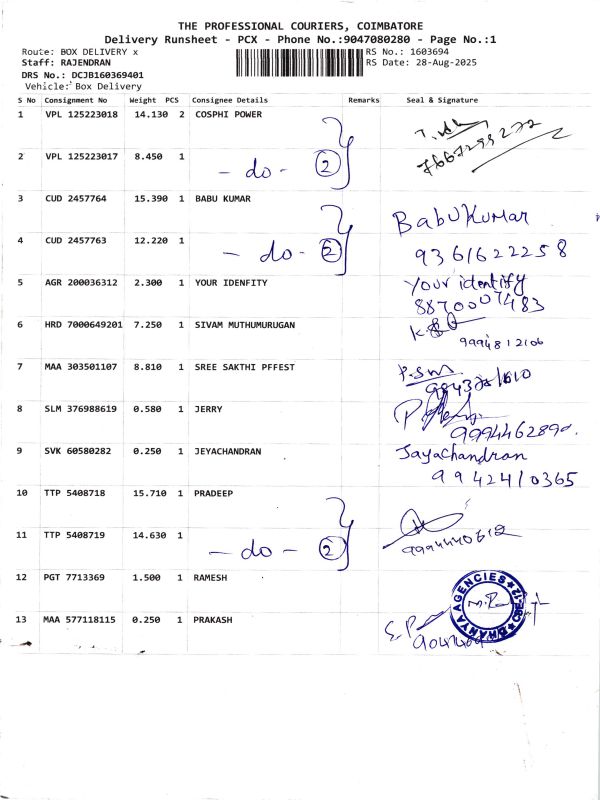 THE PROFESSIONAL COURIERS, COIMBATORE
Delivery Runsheet - PCX - Phone No.:9047080280 - Page No.:1
Route: BOX DELIVERY x RS No.: 1603694
Staff: RAJENDRAN RS Date: 28-Aug-2025
DRS No.: DCJB160369401
Vehicle: Box Delivery
S No Consignment No Weight PCS Consignee Details Remarks Seal & Signature
1 VPL 125223018 14.130 2 COSPHI POWER
7667299272
2 VPL 125223017 8.450 1 - do - 2
3 CUD 2457764 15.390 1 BABU KUMAR BabuKumar
4 CUD 2457763 12.220 1 - do - 2 9361622258
5 AGR 200036312 2.300 1 YOUR IDENFITY Your identify
8870007483
6 HRD 7000649201 7.250 1 SIVAM MUTHUMURUGAN
9994812106
7 MAA 303501107 8.810 1 SREE SAKTHI PFFEST P.SM
8 SLM 376988619 0.580 1 JERRY
9994462890
9 SVK 60580282 0.250 1 JEYACHANDRAN Jayachandran
9942410365
10 TTP 5408718 15.710 1 PRADEEP
11 TTP 5408719 14.630 1 - do - 2 9994440612
12 PGT 7713369 1.500 1 RAMESH
AGENCIES CBE-12
13 MAA 577118115 0.250 1 PRAKASH